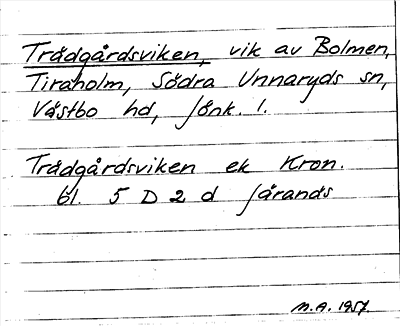 Trädgårdsviken, vik av Bolmen,
Tiraholm, Södra Unnaryds sn,
Västbo hd, Jönk. l.
Trädgårdsviken ek Kron.
bl. 5 D 2 d Jårands
M.A. 1957.